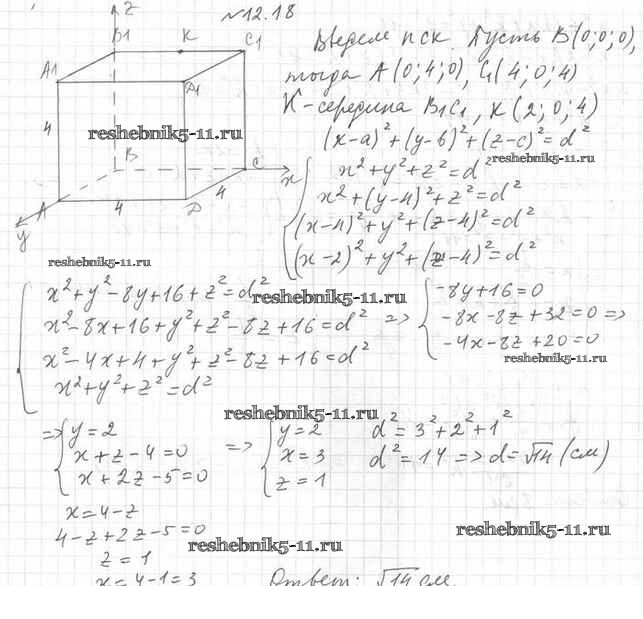 №12.18
Z
B1 K C1
A1
D1
4
B C x
4
A 4 D
y
Введем пск. Пусть B(0;0;0),
тогда A(0;4;0), C1(4;0;4)
K-середина B1C1, K(2;0;4)
(x-a)²+(y-b)²+(z-c)²=d²
x²+y²+z²=d²
x²+(y-4)²+z²=d²
(x-4)²+y²+(z-4)²=d²
(x-2)²+y²+(z-4)²=d²
x²+y²-8y+16+z²=d²
x²-8x+16+y²+z²-8z+16=d² =>
x²-4x+4+y²+z²-8z+16=d²
x²+y²+z²=d²
-8y+16=0
-8x-8z+32=0 =>
-4x-8z+20=0
=> y=2
x+z-4=0
x+2z-5=0
=> y=2
x=3
z=1
d²=3²+2²+1²
d²=14 => d=√14 (см)
x=4-z
4-z+2z-5=0
z=1
x=4-1=3
Ответ: √14 см.
reshebnik5-11.ru
reshebnik5-11.ru
reshebnik5-11.ru
reshebnik5-11.ru
reshebnik5-11.ru
reshebnik5-11.ru
reshebnik5-11.ru
reshebnik5-11.ru